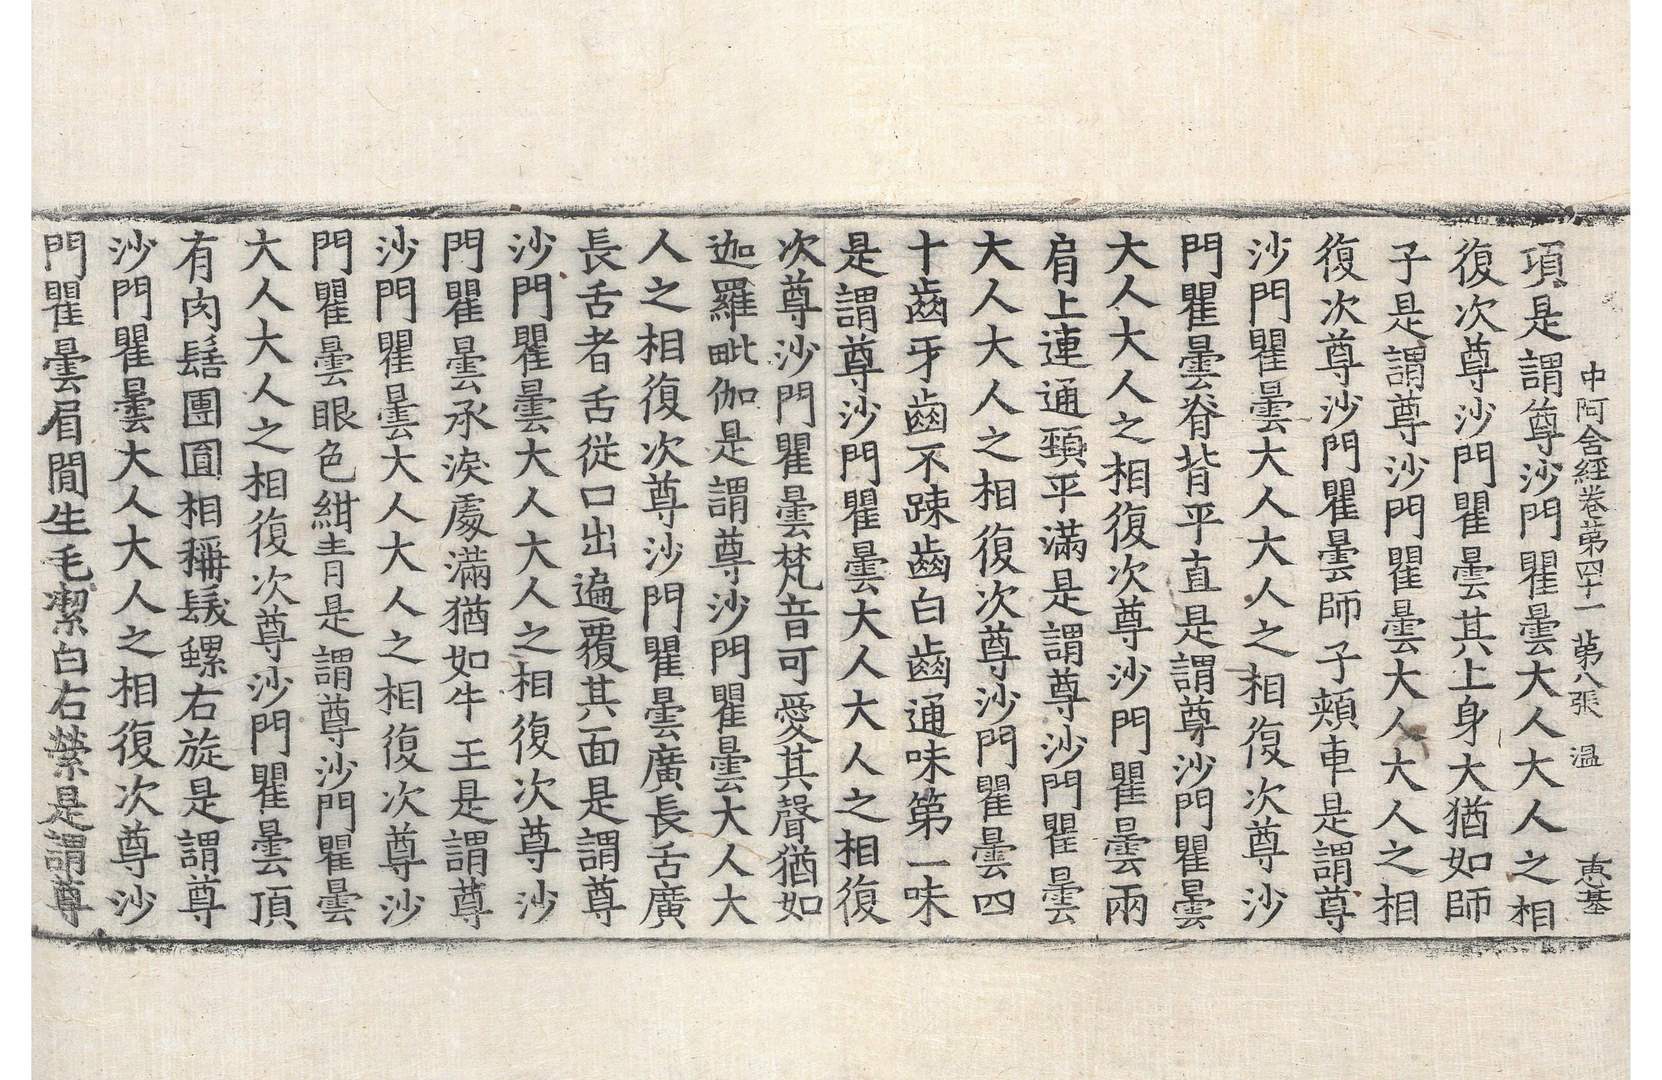 中阿含經卷第四十一 第八張 溫 惠基
項是謂尊沙門瞿曇大人大人之相
復次尊沙門瞿曇其上身大猶如師
子是謂尊沙門瞿曇大人大人之相
復次尊沙門瞿曇師子頰車是謂尊
沙門瞿曇大人大人之相復次尊沙
門瞿曇脊背平直是謂尊沙門瞿曇
大人大人之相復次尊沙門瞿曇兩
肩上連通頸平滿是謂尊沙門瞿曇
大人大人之相復次尊沙門瞿曇四
十齒牙齒不踈齒白齒通味第一味
是謂尊沙門瞿曇大人大人之相復
次尊沙門瞿曇梵音可愛其聲猶如
迦羅毗伽是謂尊沙門瞿曇大人大
人之相復次尊沙門瞿曇廣長舌廣
長舌者舌從口出遍覆其面是謂尊
沙門瞿曇大人大人之相復次尊沙
門瞿曇承淚處滿猶如牛王是謂尊
沙門瞿曇大人大人之相復次尊沙
門瞿曇眼色紺青是謂尊沙門瞿曇
大人大人之相復次尊沙門瞿曇頂
有肉髻團圓相稱髮螺右旋是謂尊
沙門瞿曇大人大人之相復次尊沙
門瞿曇眉間生毛潔白右縈是謂尊